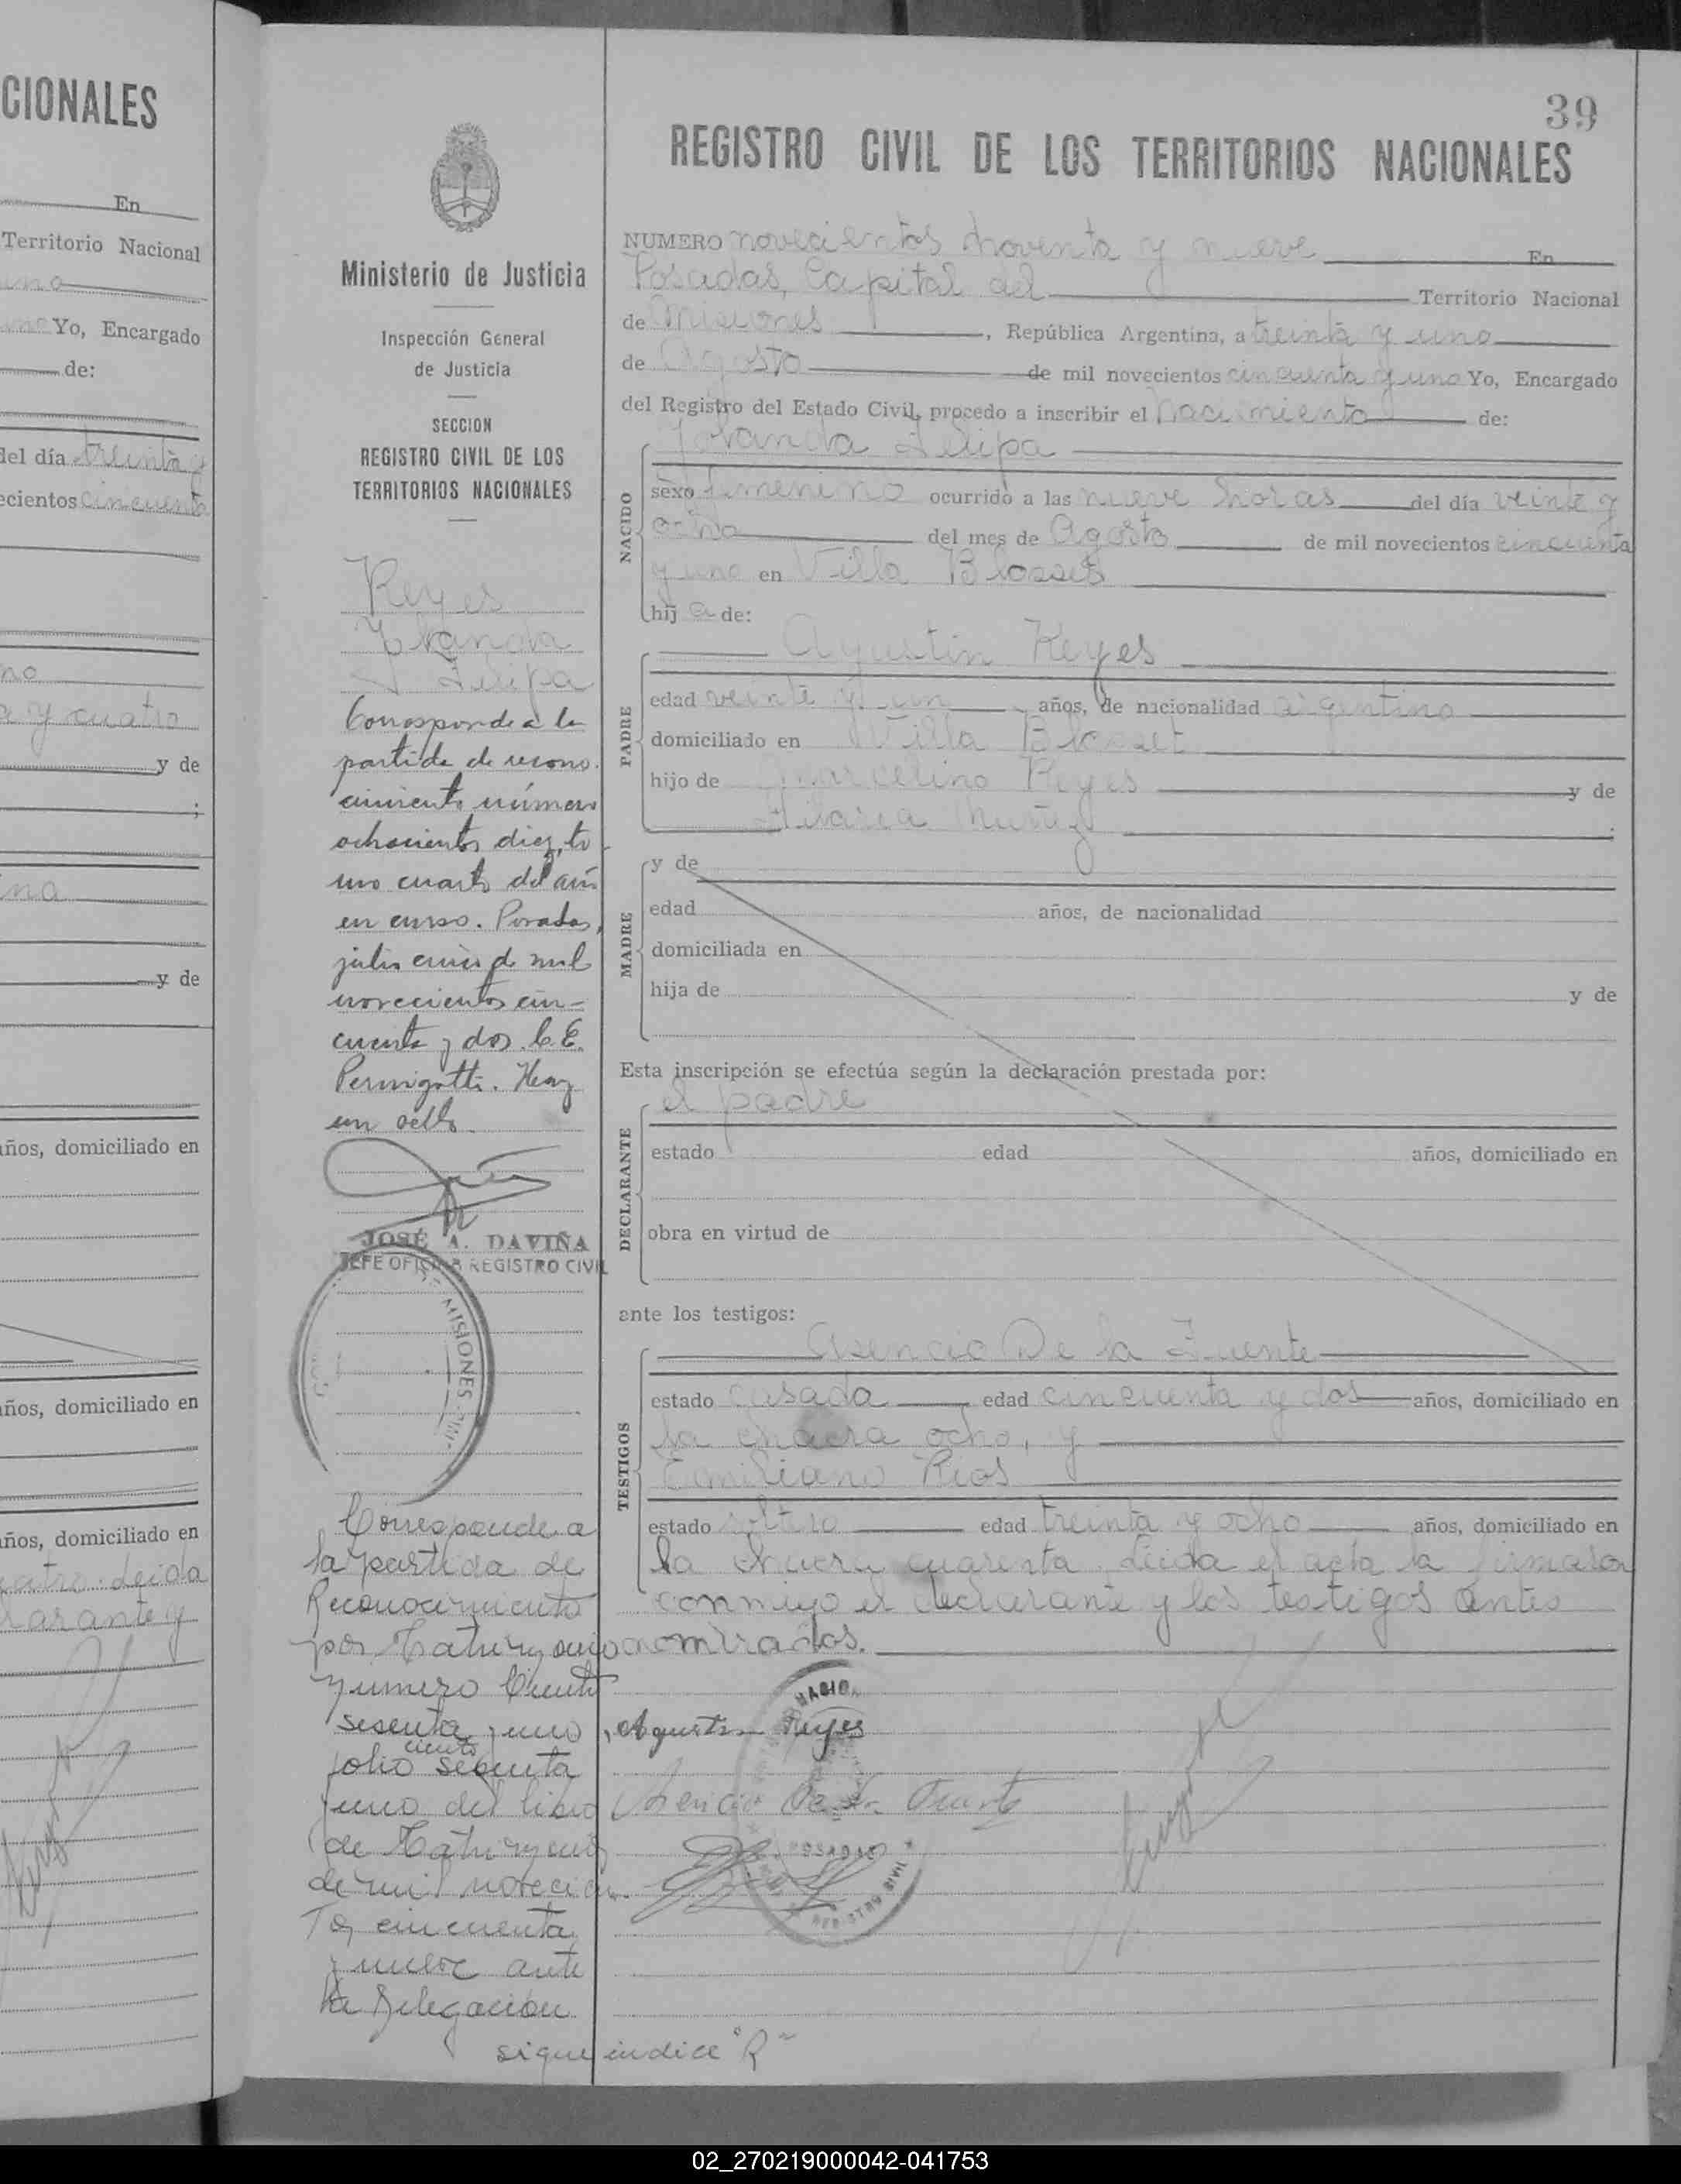 CIONALES
En
Territorio Nacional
Yo, Encargado
de:
del día treinta y
ecientos cincuenta
no
a y cuatro
y de
;
na
y de
años, domiciliado en
años, domiciliado en
años, domiciliado en
leida
larante y
Ministerio de Justicia
Inspección General
de Justicia
SECCION
REGISTRO CIVIL DE LOS
TERRITORIOS NACIONALES
Reyes
Yolanda
Felipa
Corresponde a la
partida de recono
cimiento número
ochocientos diez, to
mo cuarto del año
en curso. Posadas,
julio cinco de mil
novecientos cin-
cuenta y dos. C. E.
Permigotti. Hay
un sello
JOSÉ A. DAVIÑA
JEFE OFICINA REGISTRO CIVIL
MISIONES
Corresponde a
la partida de
Reconocimiento
por Matrimonio
Número Ciento
sesenta y uno,
folio ciento sesenta
y uno del libro
de Matrimonios
de mil novecien
tos cincuenta
y nueve ante
la Delegación
sigue indice "R"
39
REGISTRO CIVIL DE LOS TERRITORIOS NACIONALES
NUMERO novecientos noventa y nueve En
Posadas, Capital del Territorio Nacional
de Misiones, República Argentina, a treinta y uno
de Agosto de mil novecientos cincuenta y uno Yo, Encargado
del Registro del Estado Civil, procedo a inscribir el nacimiento de:
Yolanda Felipa
NACIDO
sexo femenino ocurrido a las nueve horas del día veinte y
ocho del mes de Agosto de mil novecientos cincuenta
y uno en Villa Blosset
hij a de:
Agustin Reyes
PADRE
edad veinte y un años, de nacionalidad argentino
domiciliado en Villa Blosset
hijo de Marcelino Reyes y de
Muñiz
y de
MADRE
edad años, de nacionalidad
domiciliada en
hija de y de
Esta inscripción se efectúa según la declaración prestada por:
el padre
DECLARANTE
estado edad años, domiciliado en
obra en virtud de
ante los testigos:
Asencio De la Fuente
TESTIGOS
estado casado edad cincuenta y dos años, domiciliado en
la chacra ocho, y
Emiliano Rios
estado soltero edad treinta y ocho años, domiciliado en
la chacra cuarenta. Leida el acta la firmaron
conmigo el declarante y los testigos antes
nombrados.
Agustin Reyes
Asencio De la Fuente
POSADAS
REGISTRO CIVIL
02_270219000042-041753